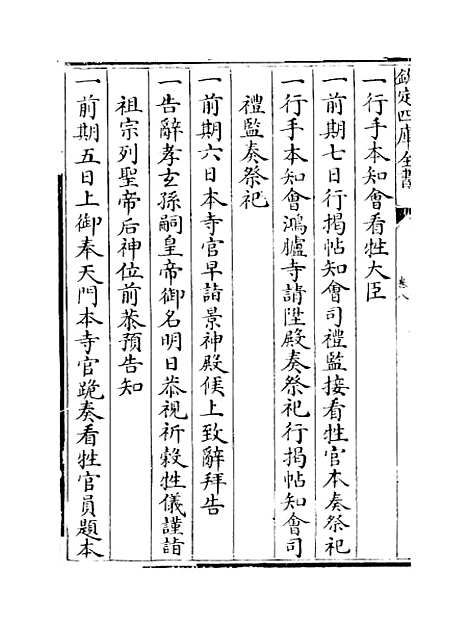 欽定四庫全書
卷八
一行手本知會看牲大臣
一前期七日行揭帖知會司禮監接看牲官本奏祭祀
一行手本知會鴻臚寺請陞殿奏祭祀行揭帖知會司
禮監奏祭祀
一前期六日本寺官早詣景神殿候上致辭拜告
一告辭孝玄孫嗣皇帝御名明日恭視祈穀牲儀謹詣
祖宗列聖帝后神位前恭預告知
一前期五日上御奉天門本寺官跪奏看牲官員題本